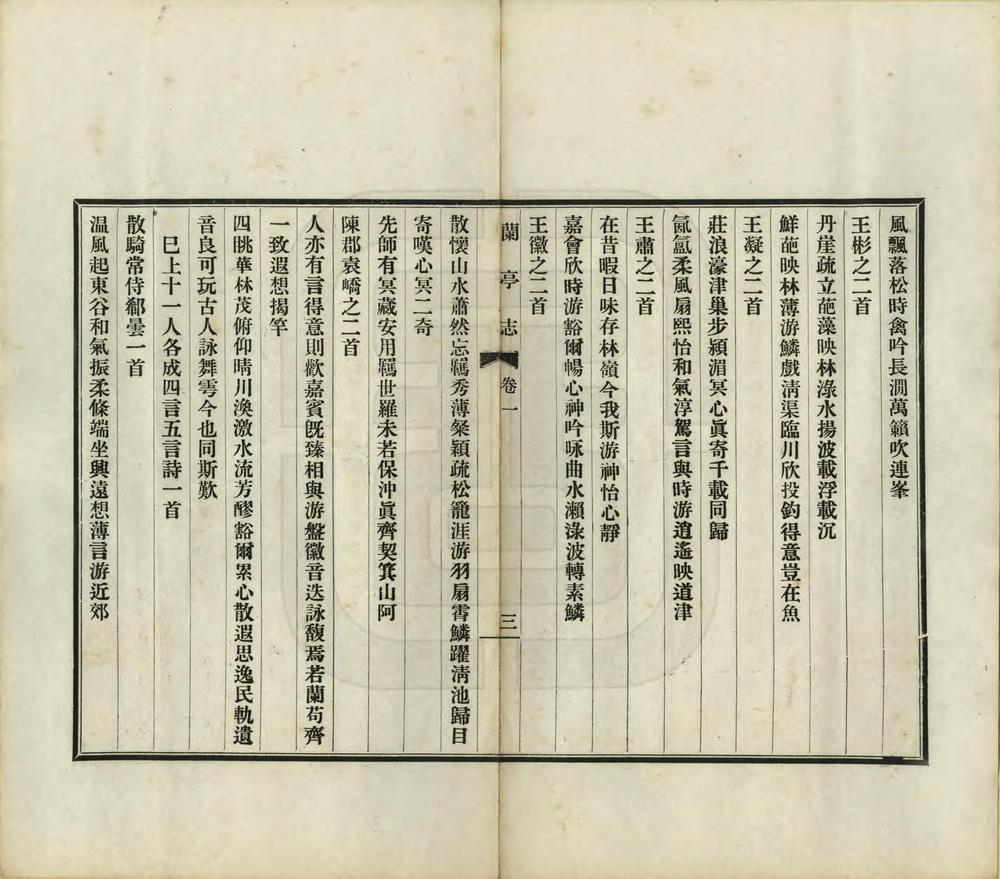 風飄落松時禽吟長澗萬籟吹連峯
王彬之二首
丹崖疏立葩藻映林淥水揚波載浮載沉
鮮葩映林薄游鱗戲淸渠臨川欣投鈎得意豈在魚
王凝之二首
莊浪濠津巢步潁湄冥心眞寄千載同歸
氤氳柔風扇熙怡和氣淳駕言與時游逍遙映道津
王肅之二首
在昔暇日味存林嶺今我斯游神怡心靜
嘉會欣時游豁爾暢心神吟咏曲水瀨淥波轉素鱗
王徽之二首
蘭亭志 卷一 三
散懷山水蕭然忘羈秀薄粲穎疏松籠涯游羽扇霄鱗躍淸池歸目
寄嘆心冥二奇
先師有冥藏安用羈世羅未若保沖眞齊契箕山阿
陳郡袁嶠之二首
人亦有言得意則歡嘉賓旣臻相與游盤徽音迭詠馥焉若蘭苟齊
一致遐想揭竿
四眺華林茂俯仰晴川渙激水流芳醪豁爾累心散遐思逸民軌遺
音良可玩古人詠舞雩今也同斯歎
巳上十一人各成四言五言詩一首
散騎常侍郗曇一首
温風起東谷和氣振柔條端坐興遠想薄言游近郊